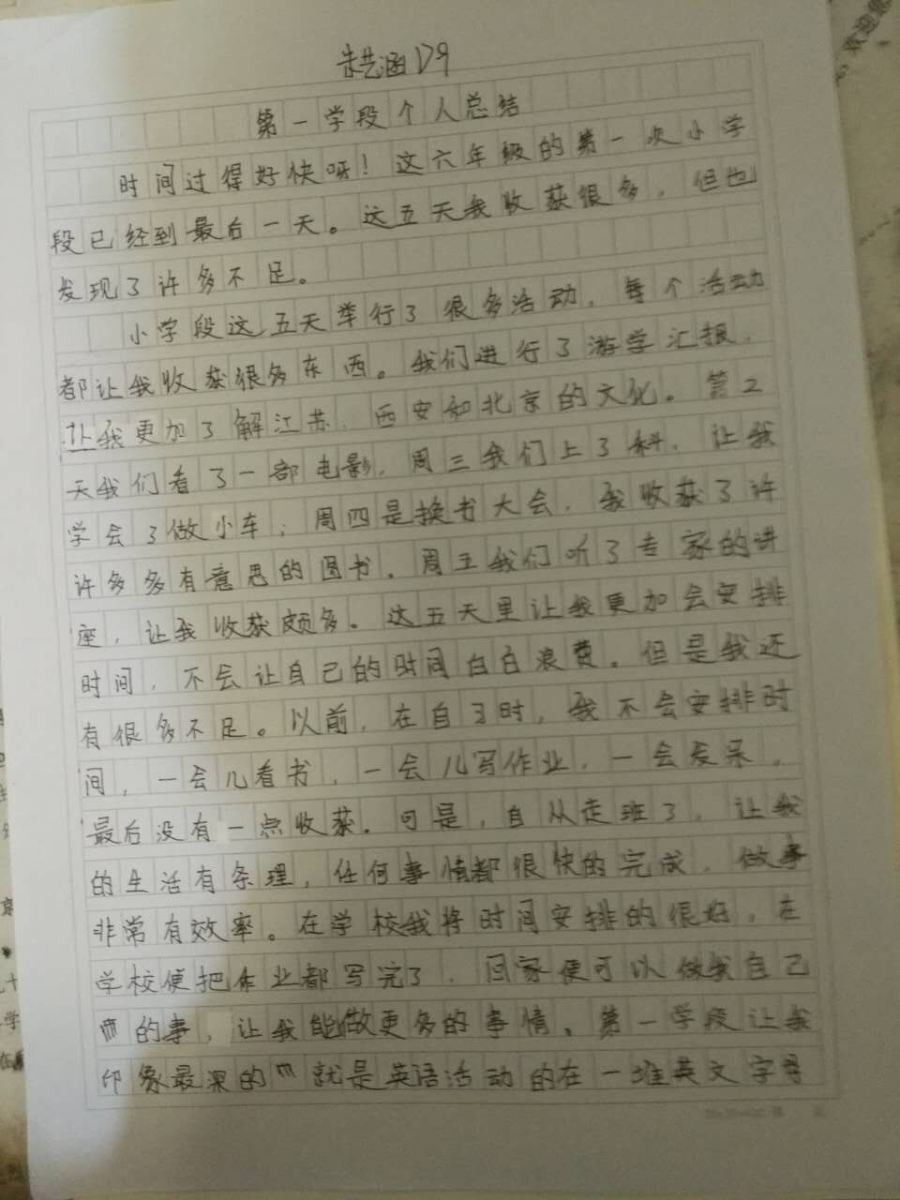 朱艺涵 D9
第一学段个人总结
时间过得好快呀！这六年级的第一次小学
段已经到最后一天。这五天我收获很多，但也
发现了许多不足。
小学段这五天举行了很多活动，每个活动
都让我收获很多东西。我们进行了游学汇报，
让我更加了解江苏、西安和北京的文化。第2
天我们看了一部电影，周三我们上了科，让我
学会了做小车；周四是换书大会，我收获了许
许多多有意思的图书，周五我们听了专家的讲
座，让我收获颇多。这五天里让我更加会安排
时间，不会让自己的时间白白浪费。但是我还
有很多不足。以前，在自习时，我不会安排时
间，一会儿看书，一会儿写作业，一会发呆，
最后没有一点收获。可是，自从走班了，让我
的生活有条理，任何事情都很快的完成，做事
非常有效率。在学校我将时间安排的很好，在
学校便把作业都写完了，回家便可以做我自己
的事，让我能做更多的事情。第一学段让我
印象最深的就是英语活动的在一堆英文字母